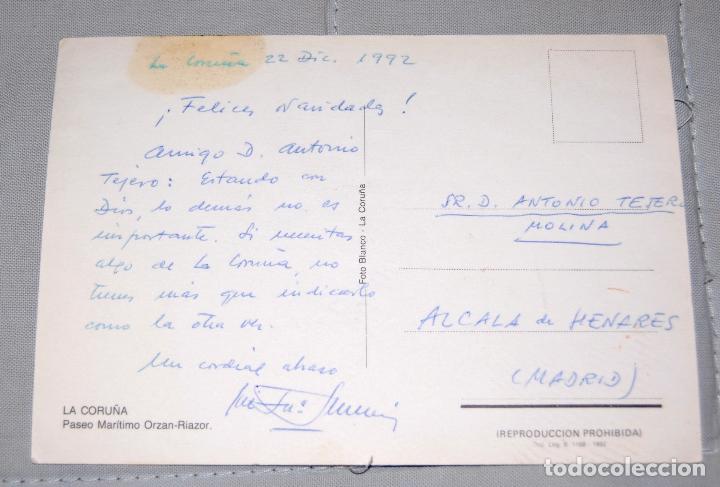 La Coruña 22 Dic. 1992
¡Felices Navidades!
Amigo D. Antonio
Tejero: Estando con
Dios, lo demás no es
importante. Si necesitas
algo de La Coruña, no
tienes más que indicarlo
como la otra vez.
Un cordial abrazo
LA CORUÑA
Paseo Marítimo Orzan-Riazor.
Foto Blanco - La Coruña
SR. D. ANTONIO TEJERO
MOLINA
ALCALA de HENARES
(MADRID)
(REPRODUCCION PROHIBIDA)
todocoleccion